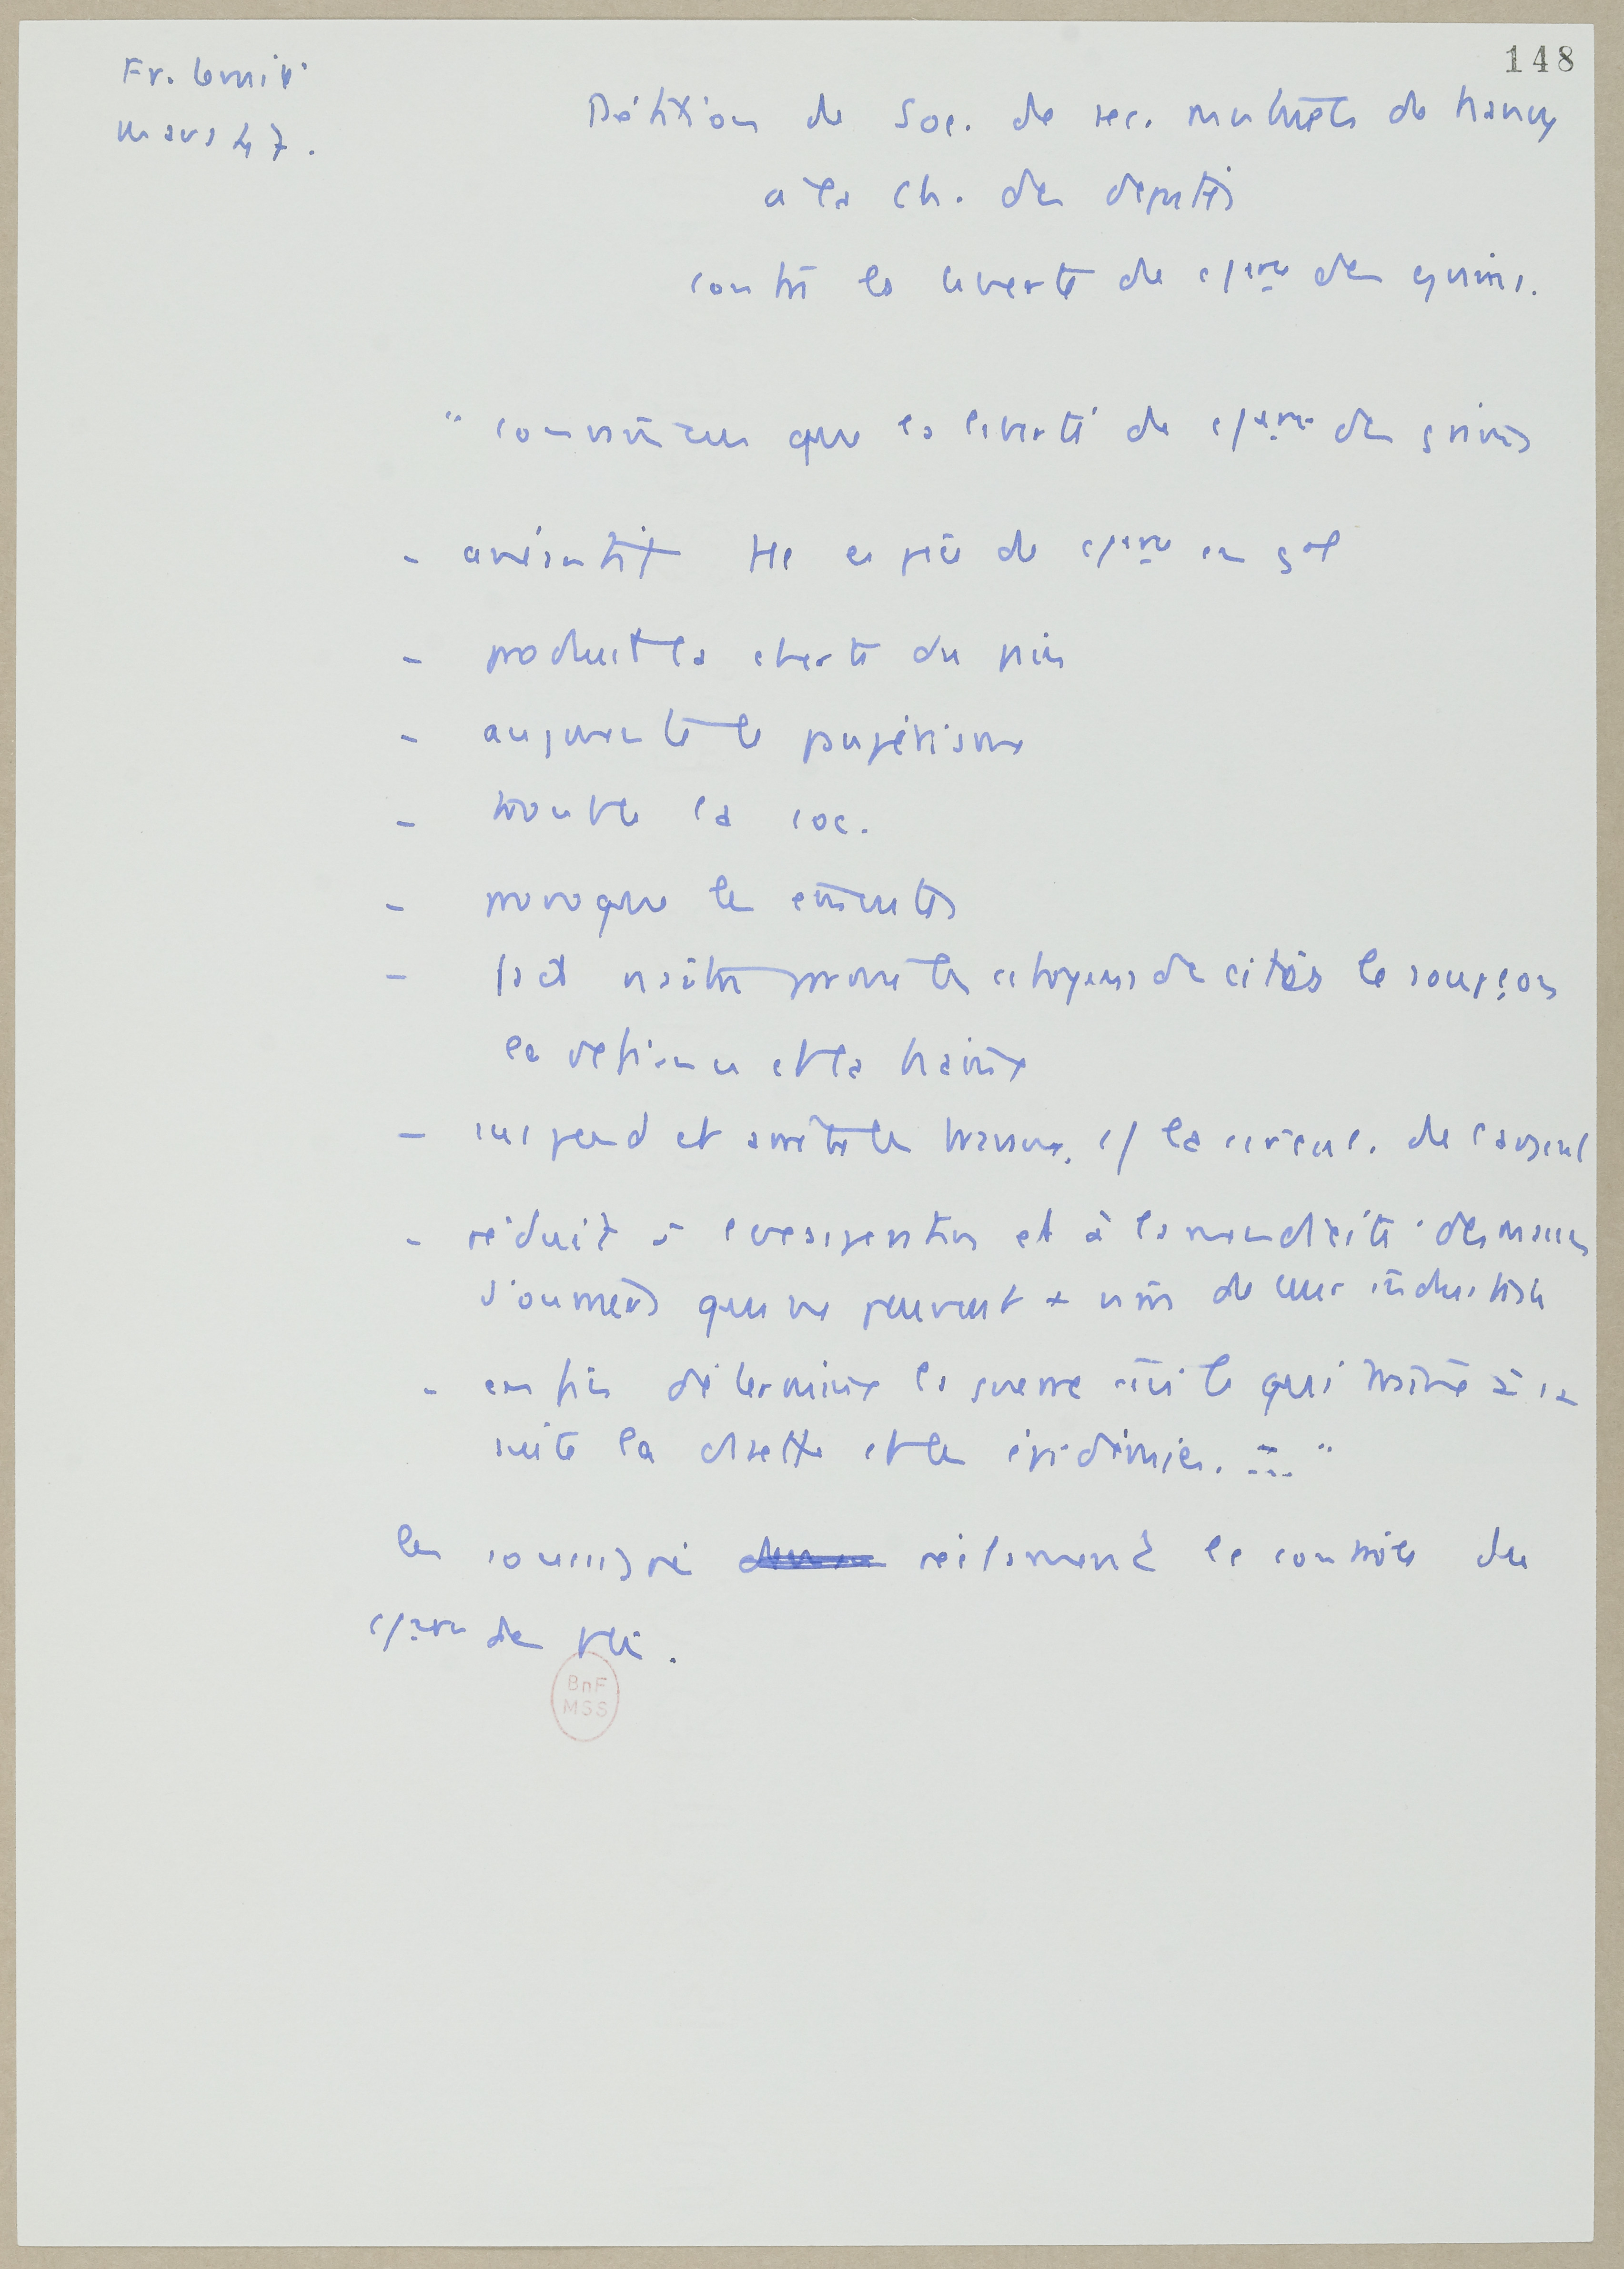 148
Fr.
mars 47.
Pétition de Soc. de sec. mutuels de Nancy
à la Ch. des députés
contre la liberté de c/erce des grains.
" convaincus que la liberté de c/erce des grains
- anéantit tte espèce de c/erce en gal
- produit la cherté du pain
- augmente le paupérisme
- trouble la soc.
- provoque les émeutes
- fait naître parmi les citoyens des cités le soupçon
la défiance et la haine
- suspend et arrête les travaux, c/ la circul. de l'argent
- réduit à et à la mendicité des masses
d'ouvriers qui ne peuvent + vivre de leur industrie
- enfin détermine la guerre civile qui traîne à sa
suite la disette et les épidémies. ... "
les soussignés réclament le contrôle du
c/erce des blés.
BnF
MSS